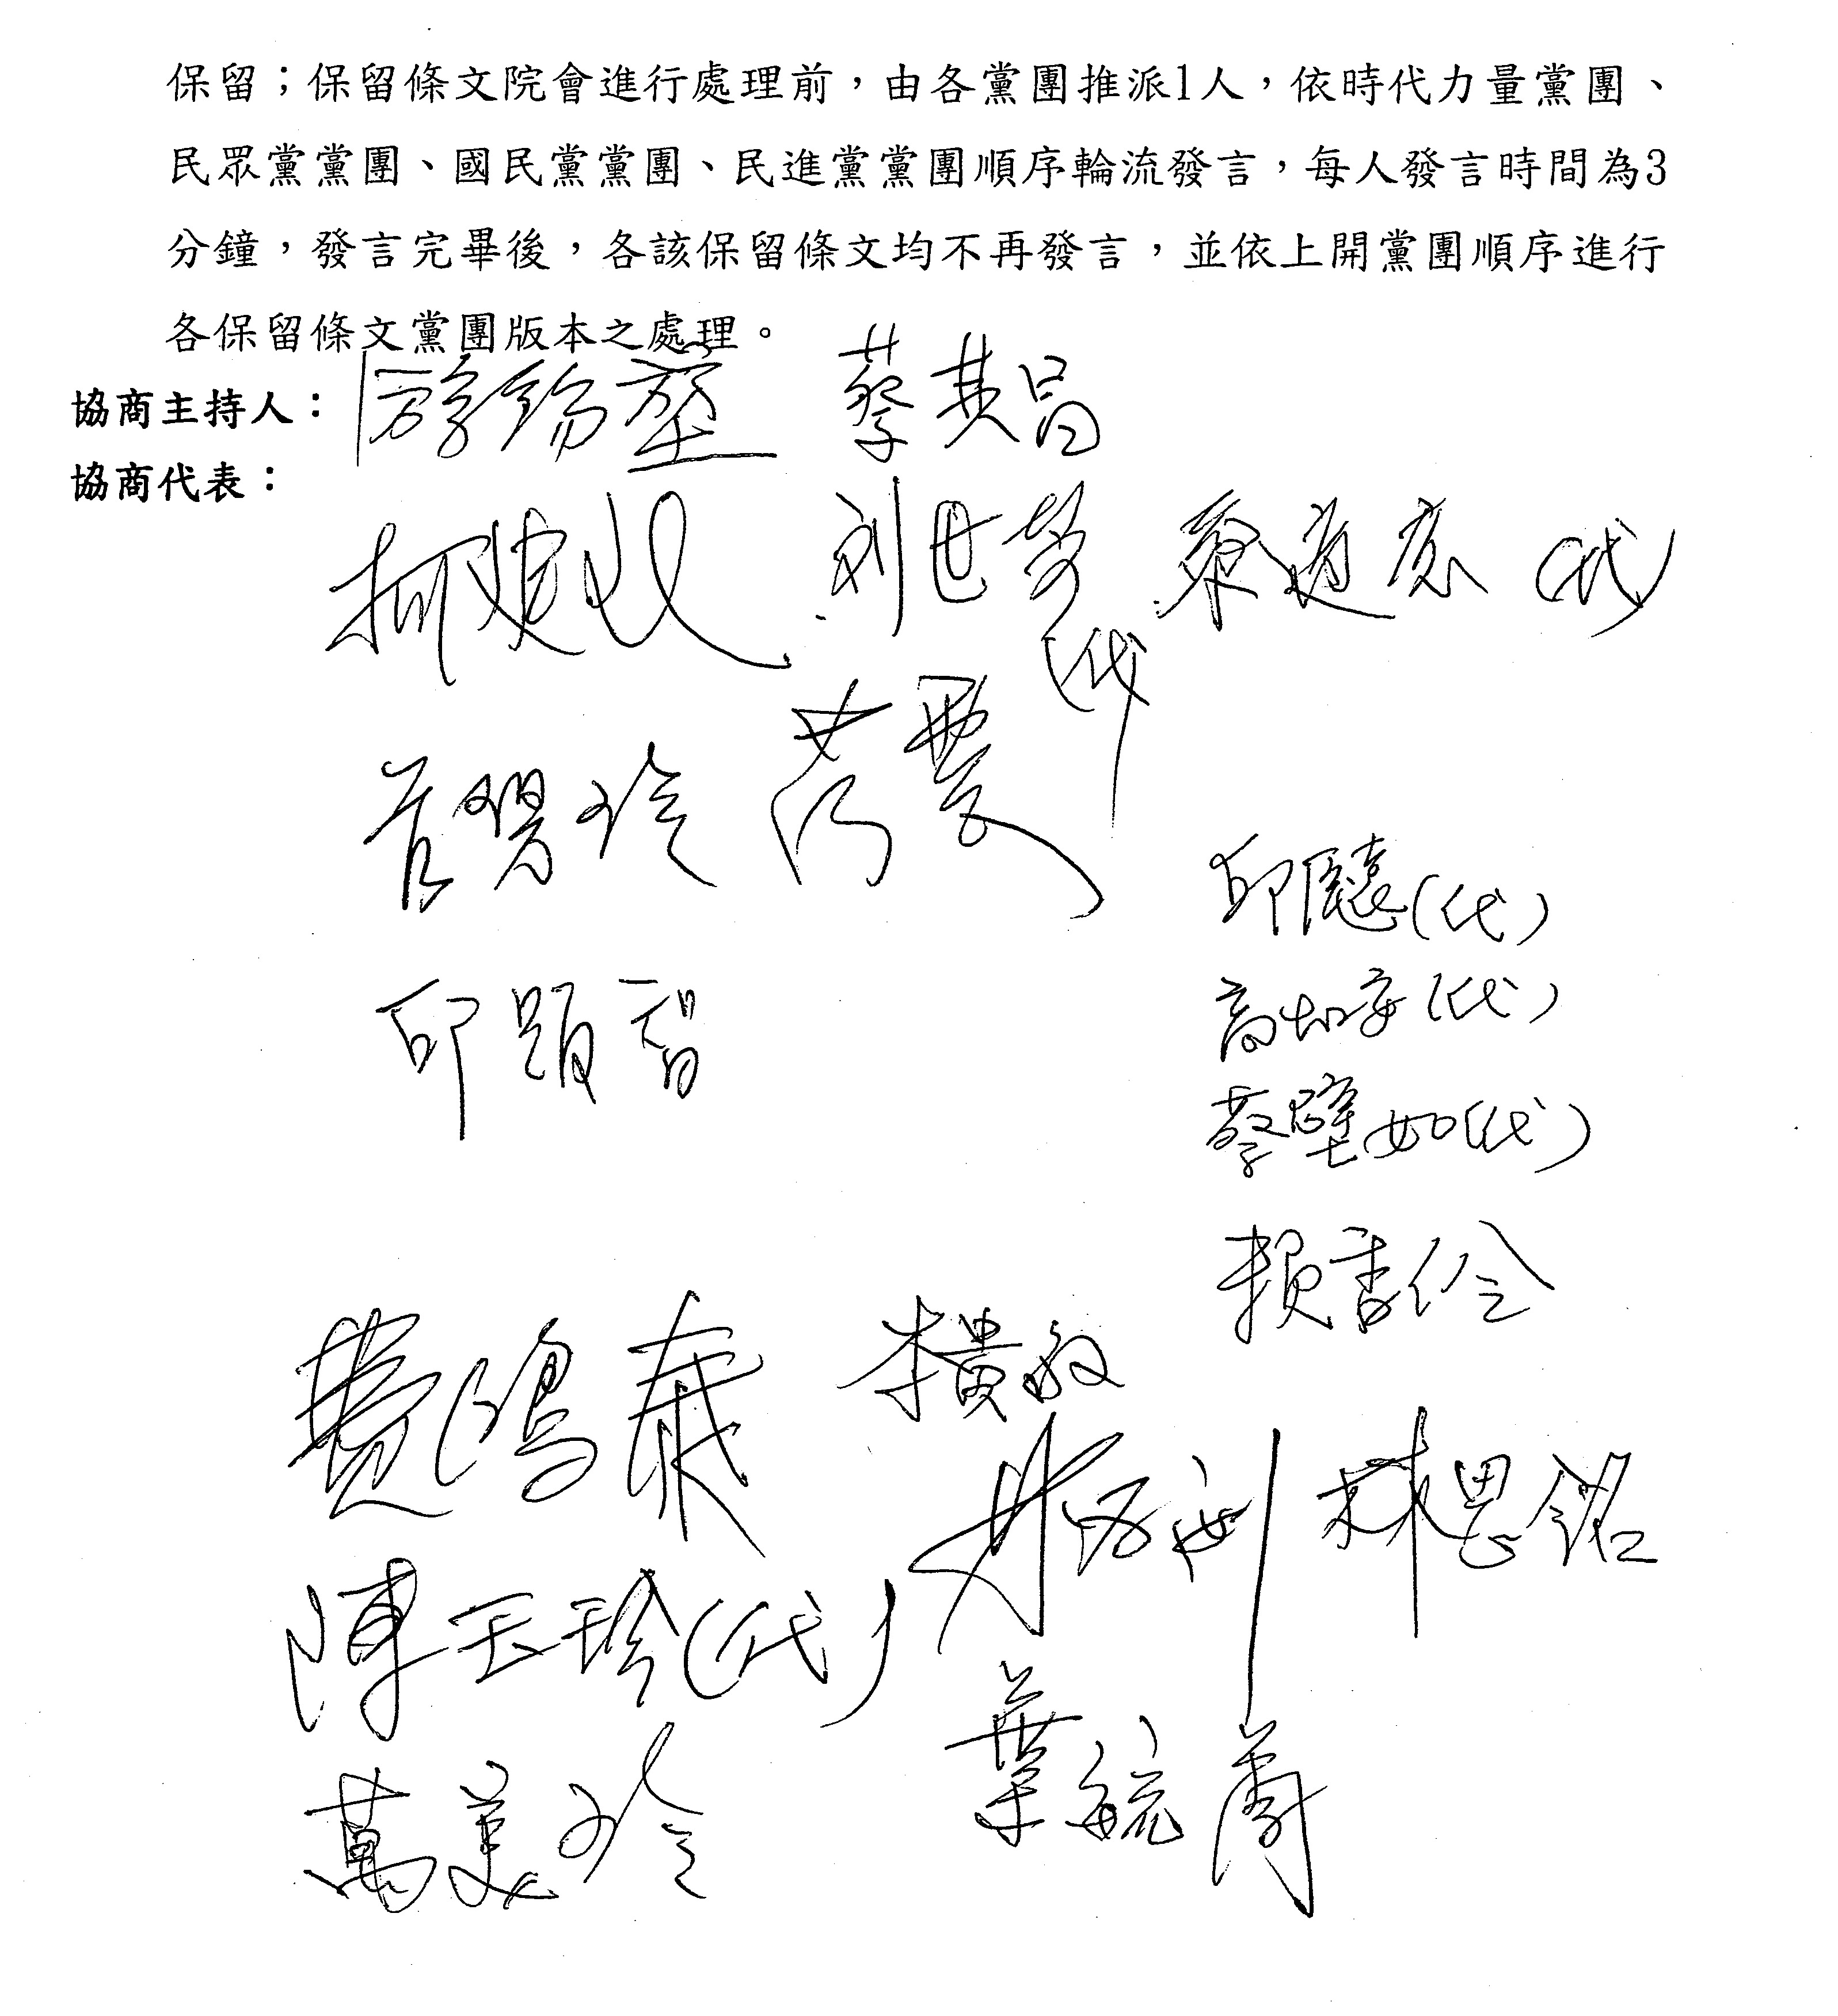 保留；保留條文院會進行處理前，由各黨團推派1人，依時代力量黨團、
民眾黨黨團、國民黨黨團、民進黨黨團順序輪流發言，每人發言時間為3
分鐘，發言完畢後，各該保留條文均不再發言，並依上開黨團順序進行
各保留條文黨團版本之處理。
協商主持人：游錫堃 蔡其昌
協商代表：
柯建銘 劉世芳(代)
管碧玲
邱臣遠(代)
邱顯智
高虹安(代)
蔡壁如(代)
賴香伶
費鴻泰 李貴敏
林思銘
陳玉珍(代)
萬美玲 葉毓蘭